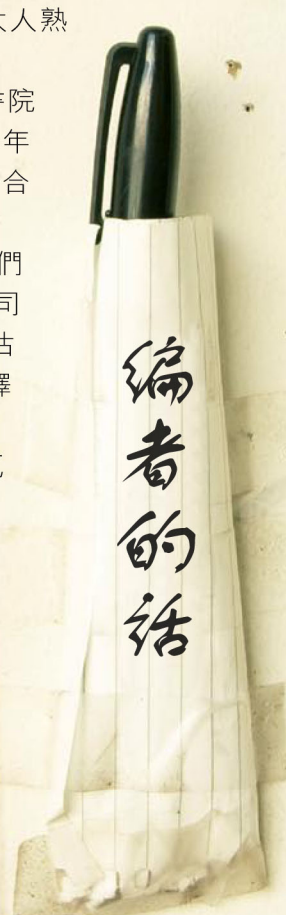 人熟
院
年
合
們
司
編者的話